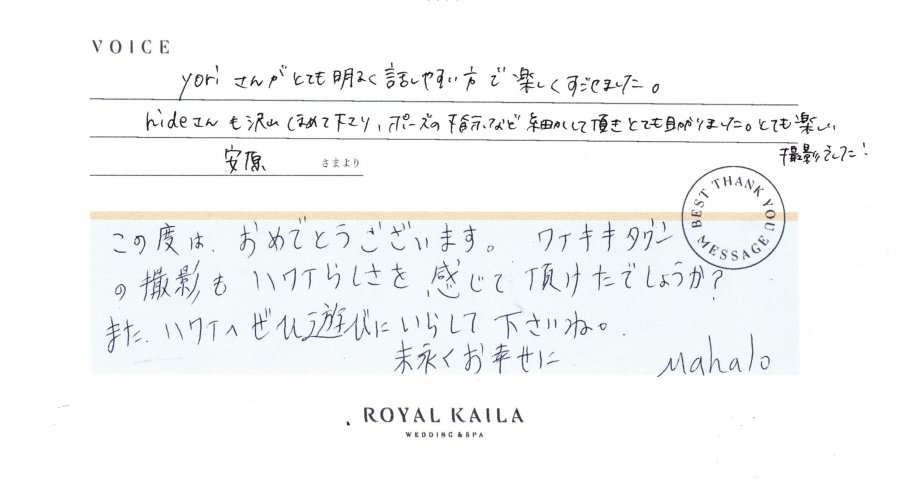 VOICE
yoriさんがとても明るく話しやすい方で楽しくすごせました。
hideさんも沢山ほめて下さり、ポーズの指示など細かくして頂きとても助かりました。とても楽しい
撮影でした！
安原 さまより
BEST THANK YOU MESSAGE
この度は、おめでとうございます。ワイキキタウン
の撮影もハワイらしさを感じて頂けたでしょうか？
また、ハワイへぜひ遊びにいらして下さいね。
末永くお幸せに Mahalo
ROYAL KAILA
WEDDING & SPA